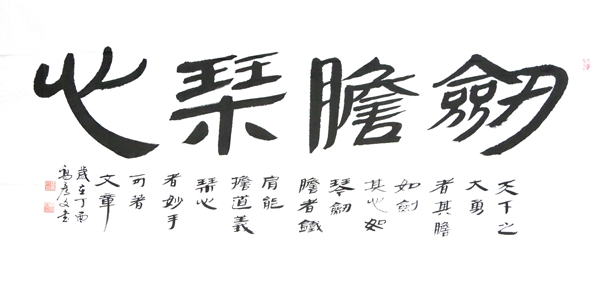 劒膽琹心
天下之
大勇
者其膽
如劍
其心如
琴劒
膽者鐵
肩能
擔道義
琹心
者妙手
可著
文章
歲在丁酉